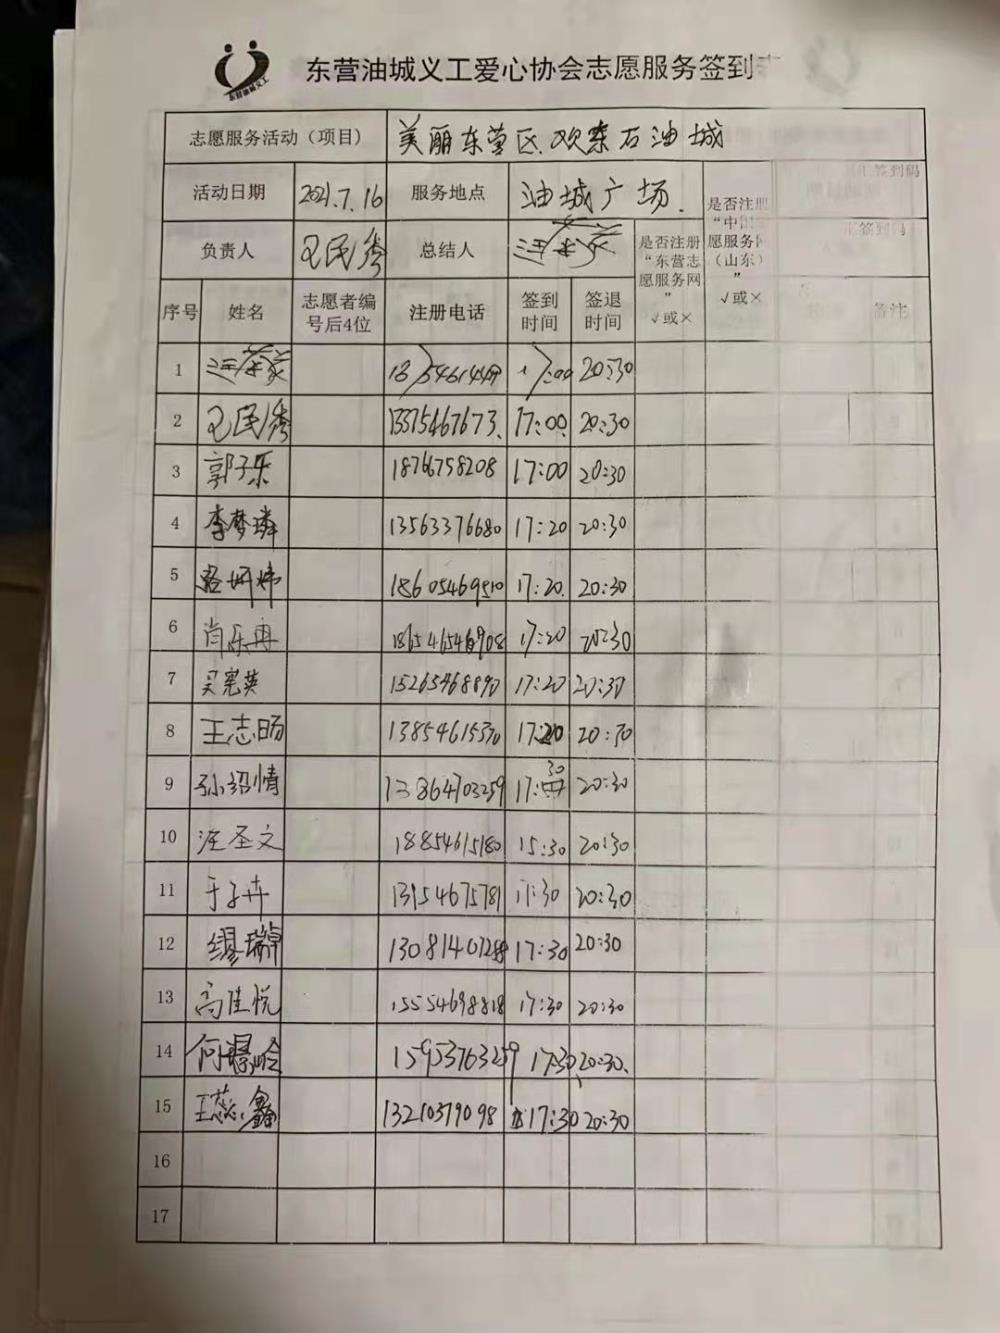 东营油城义工
东营油城义工爱心协会志愿服务签到
志愿服务活动（项目） 美丽东营区.欢乐石油城
活动日期 2021.7.16 服务地点 油城广场.
负责人 总结人
是否注册“东营志愿服务网” √或×
是否注册“中国志愿服务网（山东）” √或×
汇签到码
汇签到码
序号 姓名 志愿者编号后4位 注册电话 签到时间 签退时间 备注
1 20:30
2 13375467673. 17:00. 20:30
3 郭子乐 18766758208 17:00 20:30
4 李梦璘 13563376680 17:20 20:30
5 18605469510 17:20. 20:30
6 肖乐冉 186546546908 17:20 20:30
7 吴宪英 15265468890 17:20 20:30
8 王志旸 13854615370 17:20 20:30
9 孙绍情 13864703259 17:30 20:30
10 汪圣文 18854615180 15:30 20:30
11 于子卉 13954675781 17:30 20:30
12 缪瑞 17:30 20:30
13 高佳悦 15554698818 17:30 20:30
14 15953763259 17:30 20:30.
15 王蕊鑫 13210379098 17:30 20:30
16
17